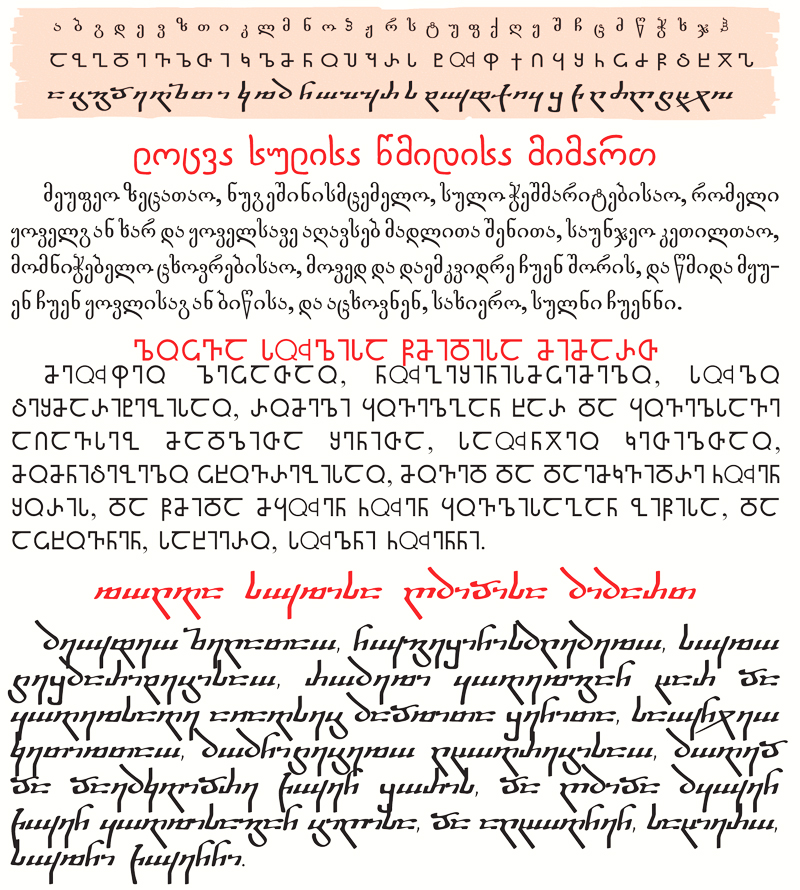 ა ბ გ დ ე ვ ზ თ ი კ ლ მ ნ ო პ ჟ რ ს ტ უ ფ ქ ღ ყ შ ჩ ც ძ წ ჭ ხ ჯ ჰ
Ⴀ Ⴁ Ⴂ Ⴃ Ⴄ Ⴅ Ⴆ Ⴇ Ⴈ Ⴉ Ⴊ Ⴋ Ⴌ Ⴍ Ⴎ Ⴏ Ⴐ Ⴑ Ⴒ ႭჃ Ⴔ Ⴕ Ⴖ Ⴗ Ⴘ Ⴙ Ⴚ Ⴛ Ⴜ Ⴝ Ⴞ Ⴟ Ⴠ
ⴀ ⴁ ⴂ ⴃ ⴄ ⴅ ⴆ ⴇ ⴈ ⴉ ⴊ ⴋ ⴌ ⴍ ⴎ ⴏ ⴐ ⴑ ⴒ ⴍⴣ ⴔ ⴕ ⴖ ⴗ ⴘ ⴙ ⴚ ⴛ ⴜ ⴝ ⴞ ⴟ ⴠ
ლოცვა სულისა წმიდისა მიმართ
მეუფეო ზეცათაო, ნუგეშინისმცემელო, სულო ჭეშმარიტებისაო, რომელი
ყოველგან ხარ და ყოველსავე აღავსებ მადლითა შენითა, საუნჯეო კეთილთაო,
მომნიჭებელო ცხოვრებისაო, მოვედ და დაემკვიდრე ჩუენ შორის, და წმიდა მყუ-
ენ ჩუენ ყოვლისაგან ბიწისა, და აცხოვნენ, სახიერო, სულნი ჩუენნი.
ႪႭႺႥႠ ႱႭჃႪႨႱႠ ႼႫႨႃႨႱႠ ႫႨႫႠႰႧ
ႫႤႭჃႴႤႭ ႦႤႺႠႧႠႭ, ႬႭჃႂႤႸႨႬႨႱႫႺႤႫႤႪႭ, ႱႭჃႪႭ
ႽႤႸႫႠႰႨႲႤႁႨႱႠႭ, ႰႭႫႤႪႨ ႷႭႥႤႪႂႠႬ ႾႠႰ ႃႠ ႷႭႥႤႪႱႠႥႤ
ႠႶႠႥႱႤႁ ႫႠႃႪႨႧႠ ႸႤႬႨႧႠ, ႱႠႭჃႬႿႤႭ ႩႤႧႨႪႧႠႭ,
ႫႭႫႬႨႽႤႁႤႪႭ ႺႾႭႥႰႤႁႨႱႠႭ, ႫႭႥႤႃ ႃႠ ႃႠႤႫႩႥႨႃႰႤ ႹႭჃႤႬ
ႸႭႰႨႱ, ႃႠ ႼႫႨႃႠ ႫႷႭჃႤႬ ႹႭჃႤႬ ႷႭႥႪႨႱႠႂႠႬ ႁႨႼႨႱႠ, ႃႠ
ႠႺႾႭႥႬႤႬ, ႱႠႾႨႤႰႭ, ႱႭჃႪႬႨ ႹႭჃႤႬႬႨ.
ⴊⴍⴚⴅⴀ ⴑⴍⴣⴊⴈⴑⴀ ⴜⴋⴈⴃⴈⴑⴀ ⴋⴈⴋⴀⴐⴇ
ⴋⴄⴍⴣⴔⴄⴍ ⴆⴄⴚⴀⴇⴀⴍ, ⴌⴍⴣⴂⴄⴘⴈⴌⴈⴑⴋⴚⴄⴋⴄⴊⴍ, ⴑⴍⴣⴊⴍ
ⴝⴄⴘⴋⴀⴐⴈⴒⴄⴁⴈⴑⴀⴍ, ⴐⴍⴋⴄⴊⴈ ⴗⴍⴅⴄⴊⴂⴀⴌ ⴞⴀⴐ ⴃⴀ
ⴗⴍⴅⴄⴊⴑⴀⴅⴄ ⴀⴖⴀⴅⴑⴄⴁ ⴋⴀⴃⴊⴈⴇⴀ ⴘⴄⴌⴈⴇⴀ, ⴑⴀⴍⴣⴌⴟⴄⴍ
ⴉⴄⴇⴈⴊⴇⴀⴍ, ⴋⴍⴋⴌⴈⴝⴄⴁⴄⴊⴍ ⴚⴞⴍⴅⴐⴄⴁⴈⴑⴀⴍ, ⴋⴍⴅⴄⴃ
ⴃⴀ ⴃⴀⴄⴋⴉⴅⴈⴃⴐⴄ ⴙⴍⴣⴄⴌ ⴘⴍⴐⴈⴑ, ⴃⴀ ⴜⴋⴈⴃⴀ ⴋⴗⴍⴣⴄⴌ
ⴙⴍⴣⴄⴌ ⴗⴍⴅⴊⴈⴑⴀⴂⴀⴌ ⴁⴈⴜⴈⴑⴀ, ⴃⴀ ⴀⴚⴞⴍⴅⴌⴄⴌ, ⴑⴀⴞⴈⴄⴐⴍ,
ⴑⴍⴣⴊⴌⴈ ⴙⴍⴣⴄⴌⴌⴈ.